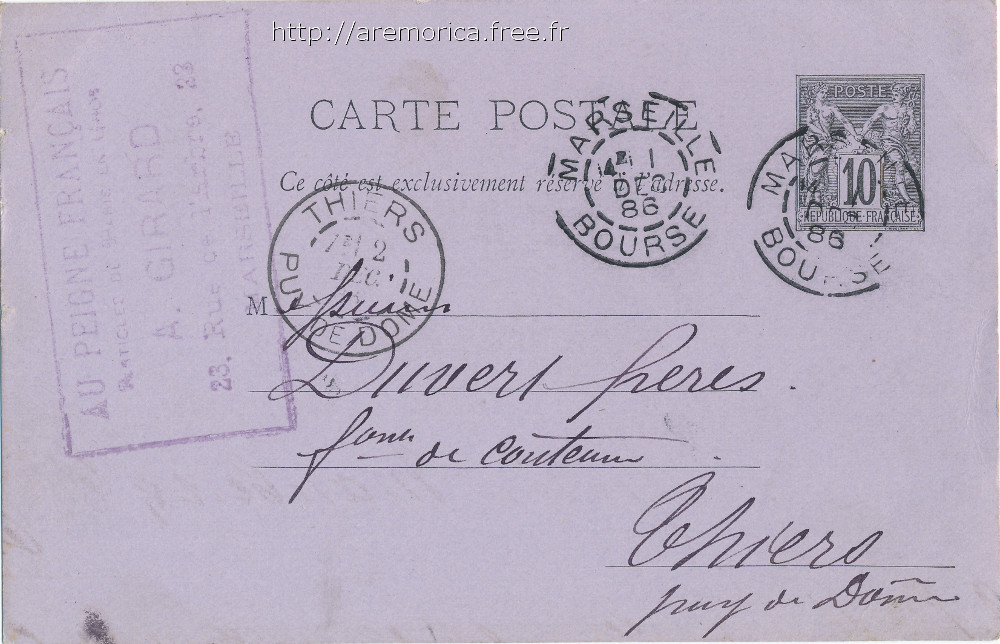 http://aremorica.free.fr
AU PEIGNE FRANÇAIS
A. GIRARD
23, Rue de 23
MARSEILLE
CARTE POSTALE
Ce côté est exclusivement réservé à l'adresse.
MARSEILLE
1
DEC
86
BOURSE
POSTE
10
REPUBLIQUE FRANÇAISE
MARSEILLE
86
BOURSE
THIERS
2
DEC.
PUY DE DOME
M
Duvert freres.
de couteaux
Thiers
puy de Dôme